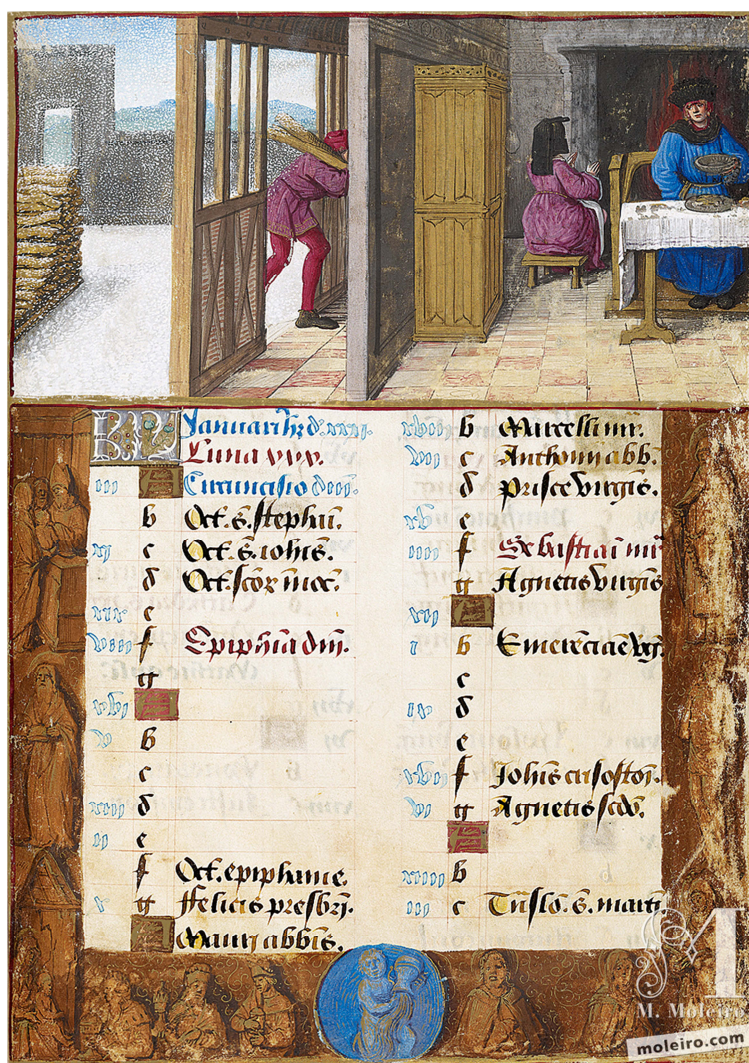 KL Januarius h̅z d. xxxi.
Luna xxx.
iii A Circuncisio dni.
b Oct. s. stephani.
xi c Oct. s. iohis.
d Oct. scoꝝ inoc.
xix e
viii f Epiphania dni.
g
xvi A
v b
c
xiii d
ii e
f Oct. epiphanie.
x g ffelicis presbri.
A Mauri abbis.
xviii b Marcelli mr.
vii c Anthonii abb.
d Prisce virgis.
xv e
iiii f Sebastiani mr
g Agnetis virgis
xii A
i b Emerenciae vg.
c
ix d
e
xvii f Iohis crisostoi.
vi g Agnetis scdo.
A
xiiii b
iii c Tnslo. s. marci
M
M. Moleiro
moleiro.com